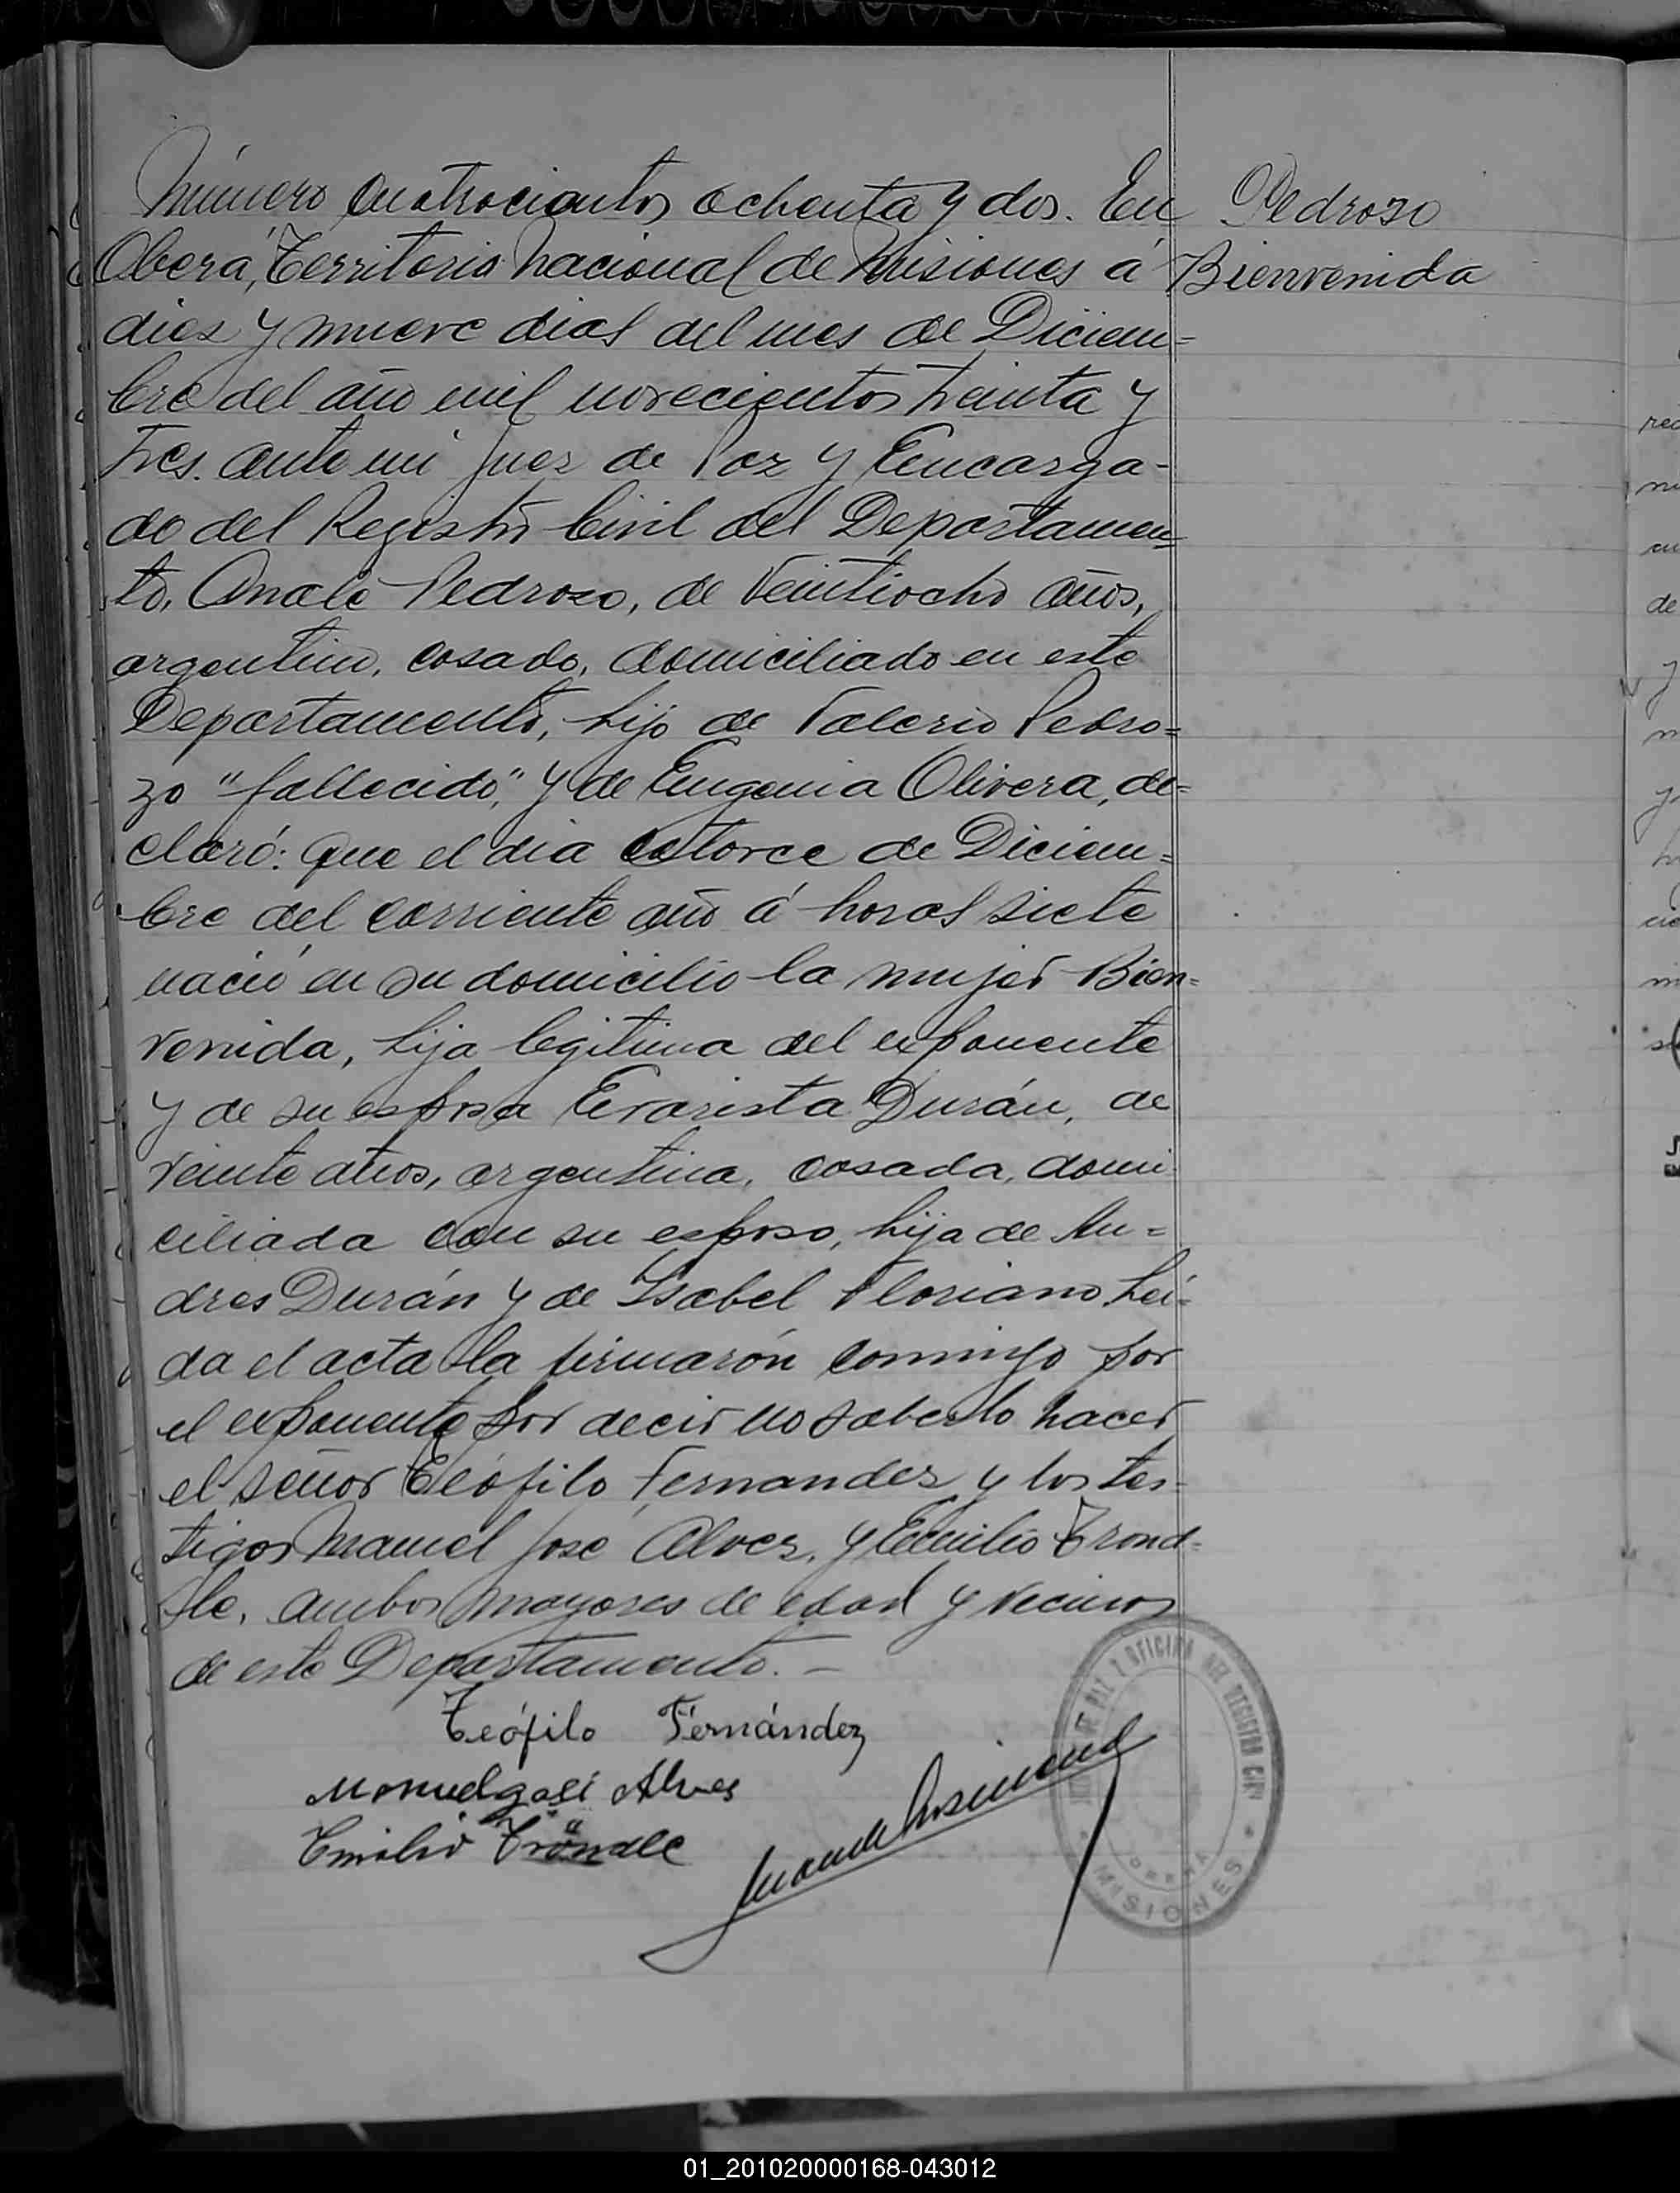 Número Cuatrocientos ochenta y dos. En
Oberá, Territorio Nacional de Misiones á
diez y nueve dias del mes de Diciem=
bre del año mil novecientos treinta y
tres. ante mi Juez de Paz y Encarga-
do del Registro Civil del Departamen=
to, Pedrozo, de Veintiocho años,
argentino, casado, domiciliado en este
Departamento, hijo de Valerio Pedro=
zo "fallecido", y de Eugenia Olivera, de=
claró: Que el dia catorce de Diciem=
bre del corriente año á horas siete
nació en su domicilio la mujer Bien=
venida, hija legitima del exponente
y de su esposa Evarista Durán, de
veinte años, argentina, casada, domi
ciliada con su esposo, hija de An=
dres Durán y de Isabel Floriano Lei=
da el acta la firmarón conmigo por
el exponente por decir no saberlo hacer
el señor Teófilo Fernandez y los tes-
tigos Manuel José Alvez, y Emilio Trond=
le, ambos mayores de edad y vecinos
de este Departamento. —
Pedrozo
Bienvenida
Teófilo Fernández
Manuel José Alves
Emilio Tröndle
JUZGADO DE PAZ Y OFICINA DEL REGISTRO CIVIL
OBERA
MISIONES
01_201020000168-043012